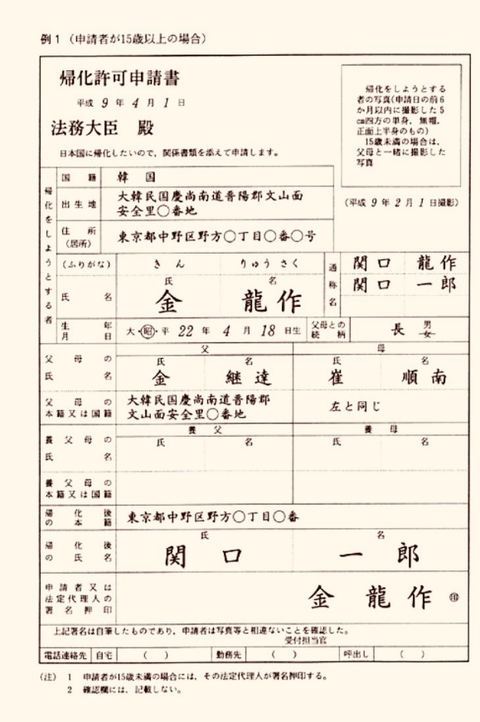 例1（申請者が15歳以上の場合）
帰化許可申請書
平成 9 年 4 月 1 日
法務大臣 殿
日本国に帰化したいので，関係書類を添えて申請します。
帰化をしようとする者の写真(申請日の前6か月以内に撮影した5cm四方の単身，無帽，正面上半身のもの)
15歳未満の場合は，父母と一緒に撮影した写真
(平成 9 年 2 月 1 日撮影)
帰化をしようとする者
国籍 韓国
出生地 大韓民国慶尚南道晋陽郡文山面
安全里○番地
住所
(居所) 東京都中野区野方○丁目○番○号
(ふりがな) きん りゅうさく
氏 名
氏名 金 龍作
通称名 関口 龍作
関口 一郎
生年月日 大・昭・平 22 年 4 月 18 日生
父母との続柄 長 男 女
父母の氏名
父 母
氏 名 氏 名
金 継達 崔 順南
父母の本籍又は国籍 大韓民国慶尚南道晋陽郡
文山面安全里○番地
左と同じ
養父母の氏名
養父 養母
氏 名 氏 名
養父母の本籍又は国籍
帰化後の本籍 東京都中野区野方○丁目○番
帰化後の氏名
氏 名
関口 一郎
申請者又は法定代理人の署名押印 金 龍作 ㊞
上記署名は自筆したものであり，申請者は写真等と相違ないことを確認した。
受付担当官
電話連絡先 自宅 ( ) 勤務先 ( ) 呼出し ( )
(注) 1 申請者が15歳未満の場合には，その法定代理人が署名押印する。
2 確認欄には，記載しない。